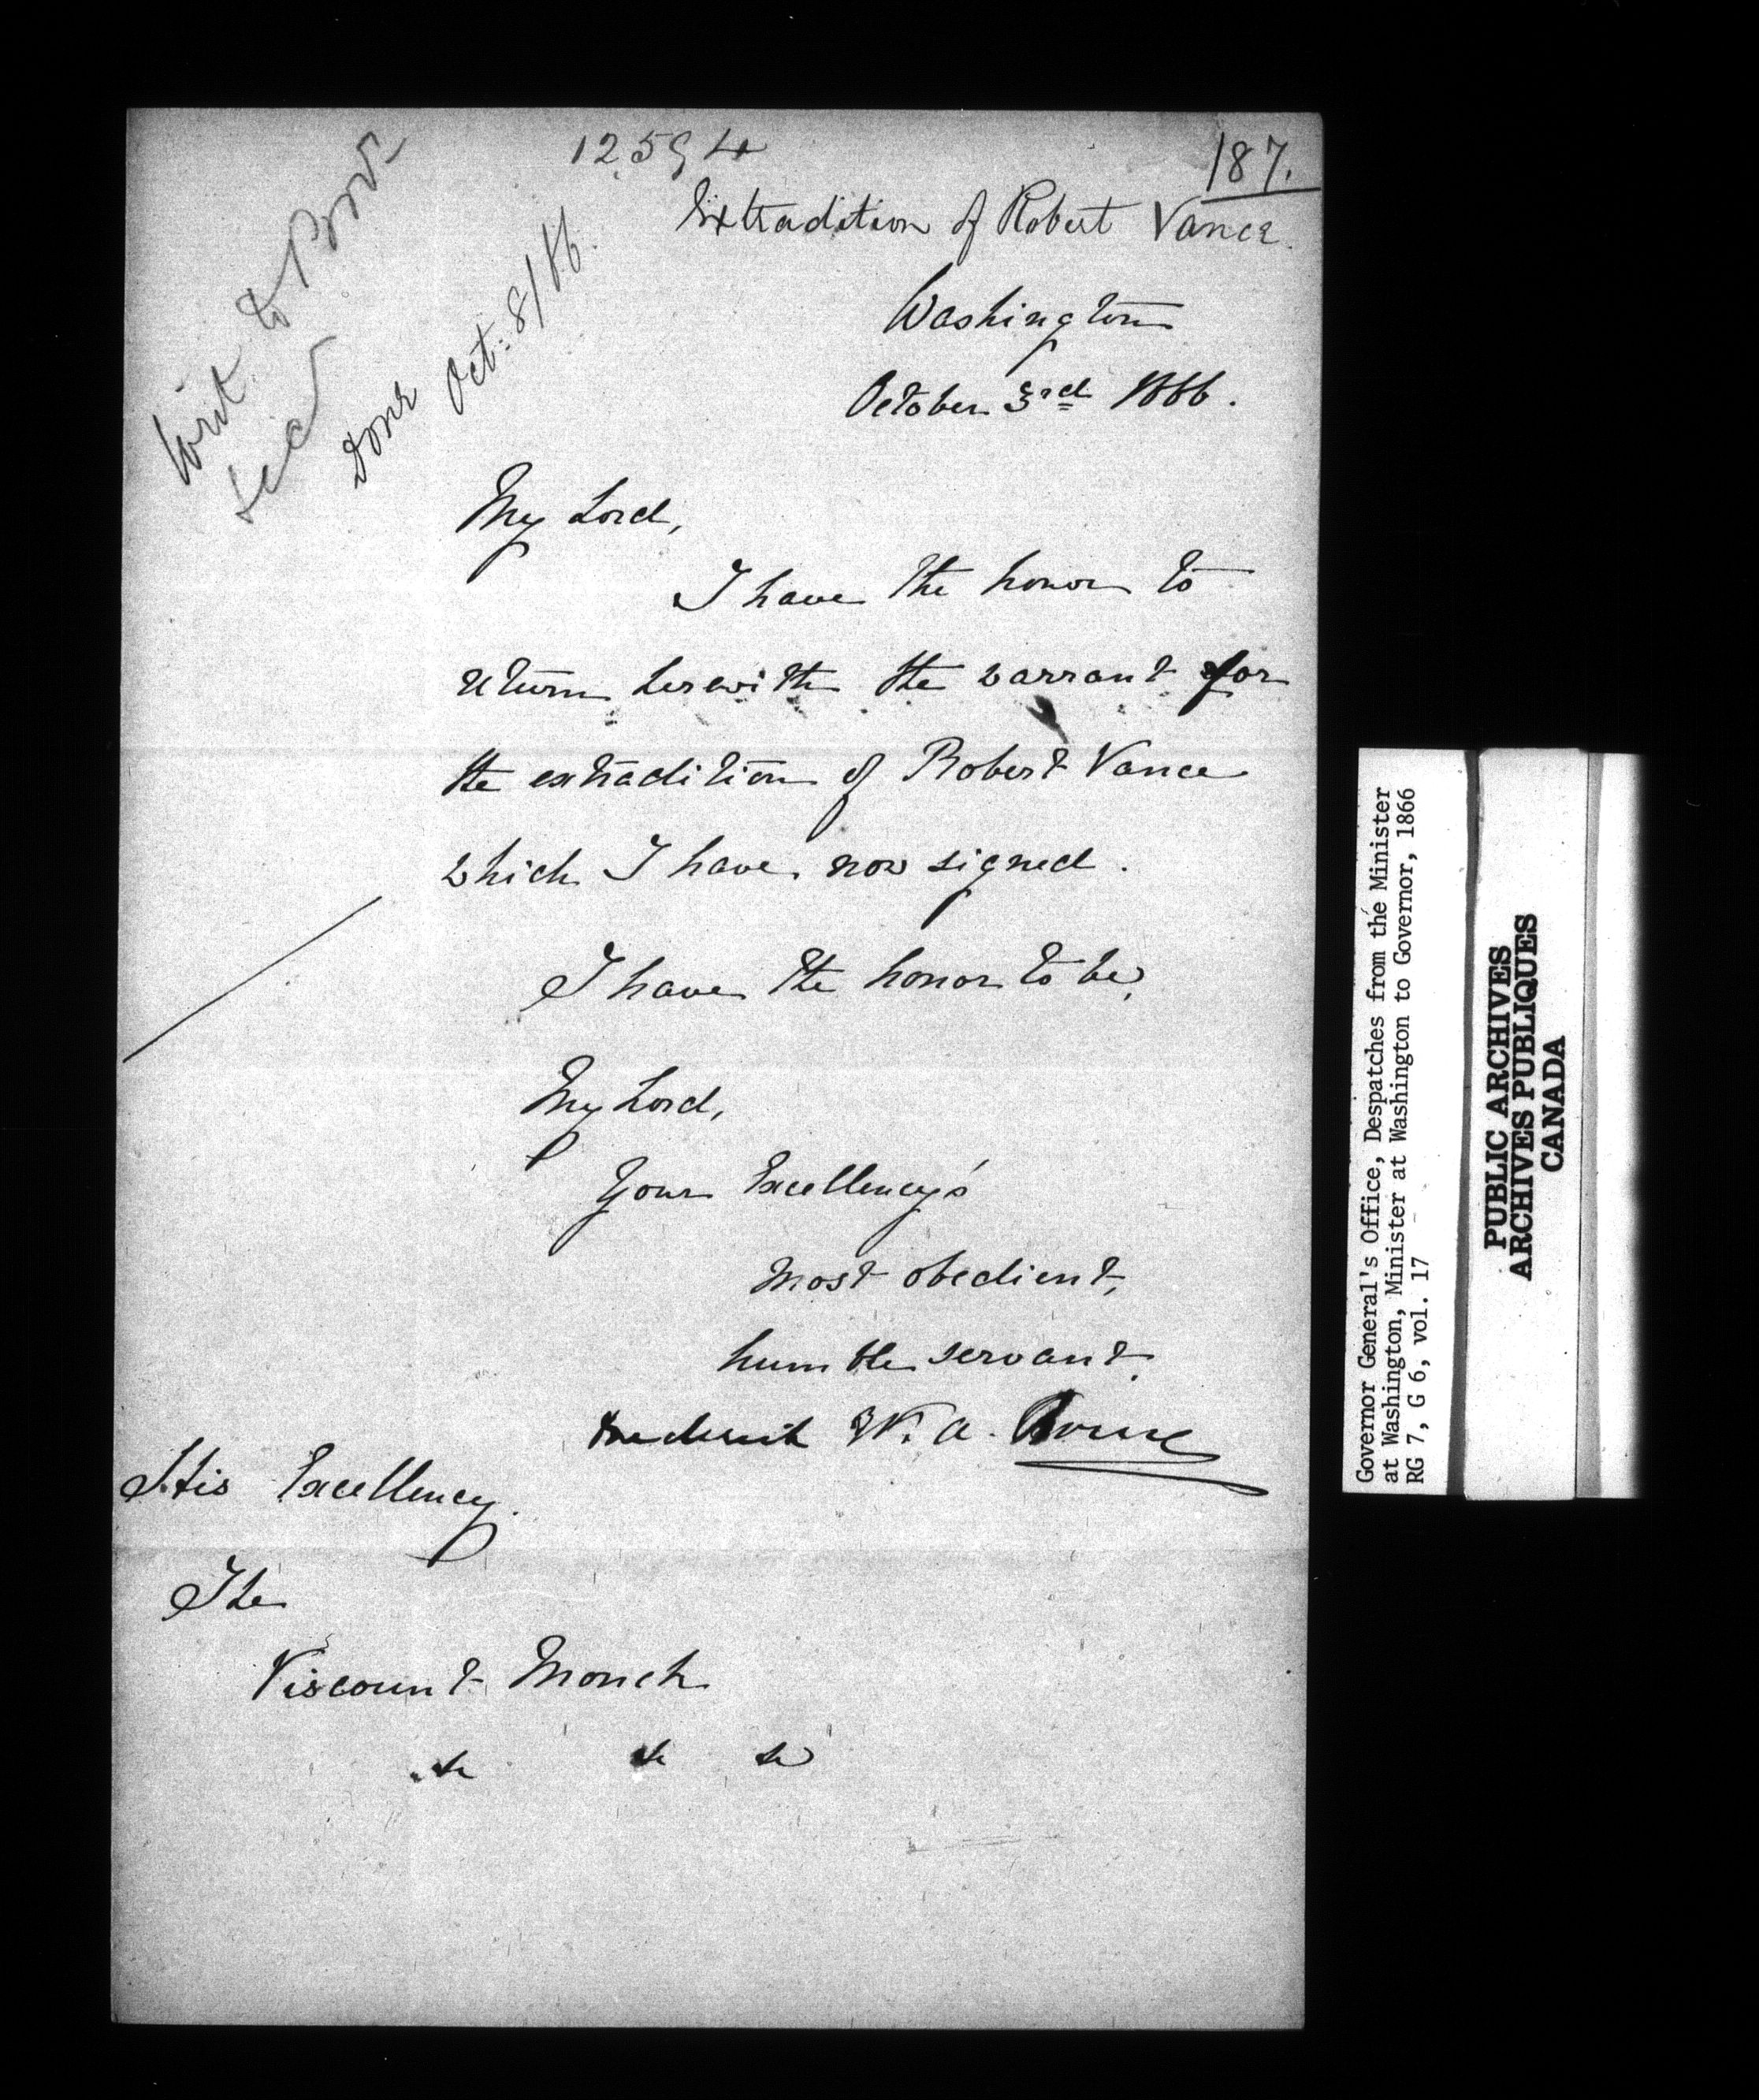 12594
187.
Extradition of Robert Vance.
Writ to Prov.
Sec
Done Oct: 8/66.
Washington
October 3rd 1866.
My Lord,
I have the honor to
return herewith the warrant for
the extradition of Robert Vance
which I have now signed.
I have the honor to be,
My Lord,
Your Excellency's
most obedient,
humble servant,
Frederick W. A. Bruce
His Excellency
The
Viscount Monck
&c &c &c
Governor General's Office, Despatches from the Minister
at Washington, Minister at Washington to Governor, 1866
RG 7, G 6, vol. 17
PUBLIC ARCHIVES
ARCHIVES PUBLIQUES
CANADA